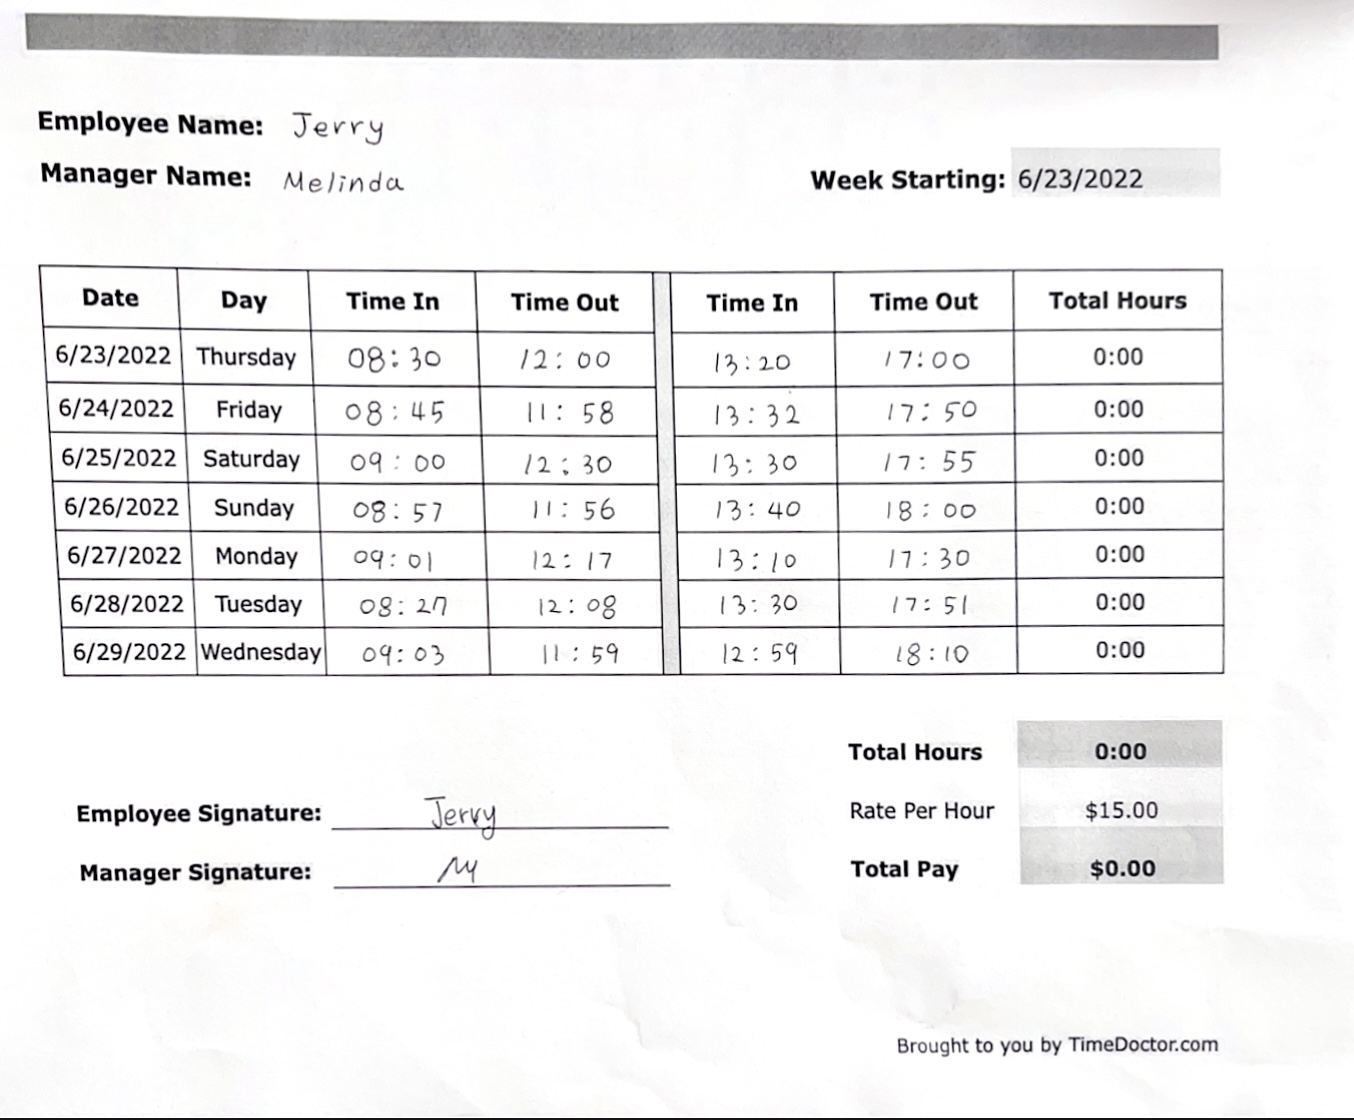 Employee Name: Jerry
Manager Name: Melinda
Week Starting: 6/23/2022
Date Day Time In Time Out Time In Time Out Total Hours
6/23/2022 Thursday 08:30 12:00 13:20 17:00 0:00
6/24/2022 Friday 08:45 11:58 13:32 17:50 0:00
6/25/2022 Saturday 09:00 12:30 13:30 17:55 0:00
6/26/2022 Sunday 08:57 11:56 13:40 18:00 0:00
6/27/2022 Monday 09:01 12:17 13:10 17:30 0:00
6/28/2022 Tuesday 08:27 12:08 13:30 17:51 0:00
6/29/2022 Wednesday 09:03 11:59 12:59 18:10 0:00
Total Hours 0:00
Rate Per Hour $15.00
Total Pay $0.00
Employee Signature: Jerry
Manager Signature: M
Brought to you by TimeDoctor.com